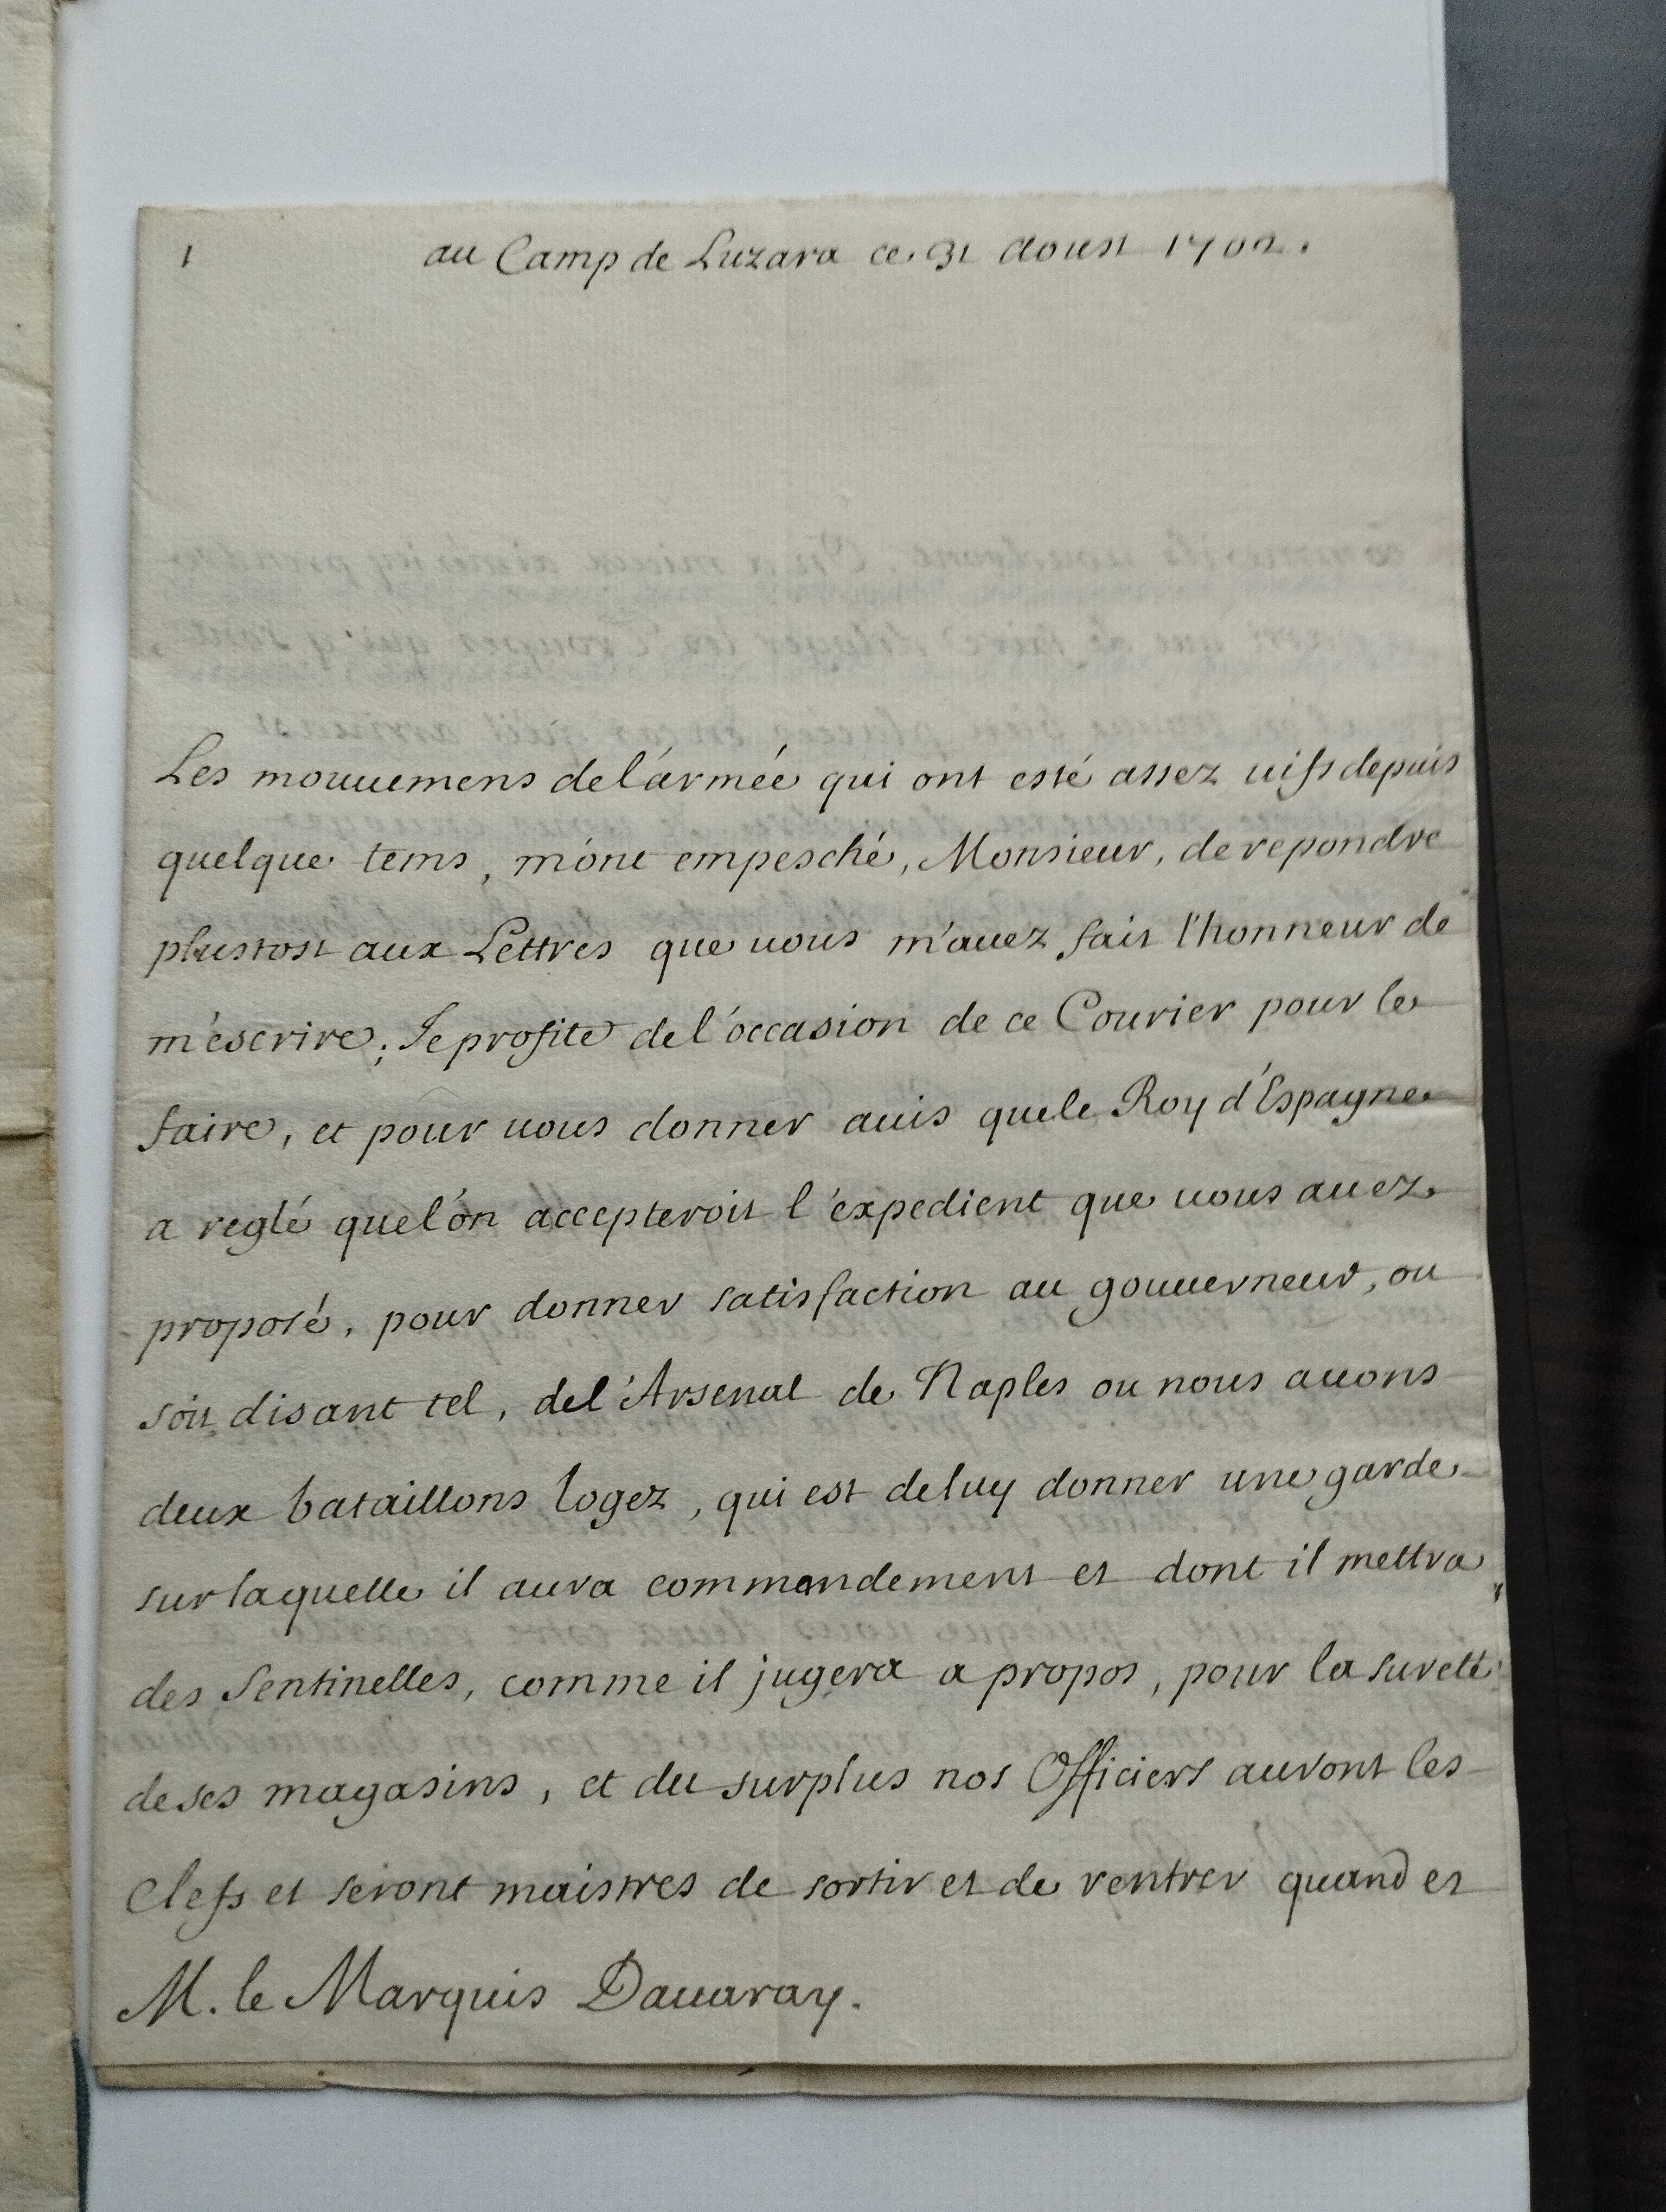 1 au Camp de Luzara ce 31 Aoust 1702.
Les mouuemens de l'armée qui ont esté assez uifs depuis
quelque tems, m'ont empesché, Monsieur, de repondre
plustost aux Lettres que uous m'auez fait l'honneur de
m'escrire; Je profite de l'occasion de ce Courier pour le
faire, et pour uous donner auis que le Roy d'Espagne
a reglé que l'on accepteroit l'expedient que uous auez
proposé, pour donner satisfaction au gouuerneur, ou
soit disant tel, de l'Arsenal de Naples ou nous auons
deux bataillons logez, qui est de luy donner une garde
sur laquelle il aura commandement et dont il mettra
des Sentinelles, comme il jugera a propos, pour la sureté
de ses magasins, et du surplus nos Officiers auront les
Clefs et seront maistres de sortir et de rentrer quand et
M. le Marquis Dauaray.